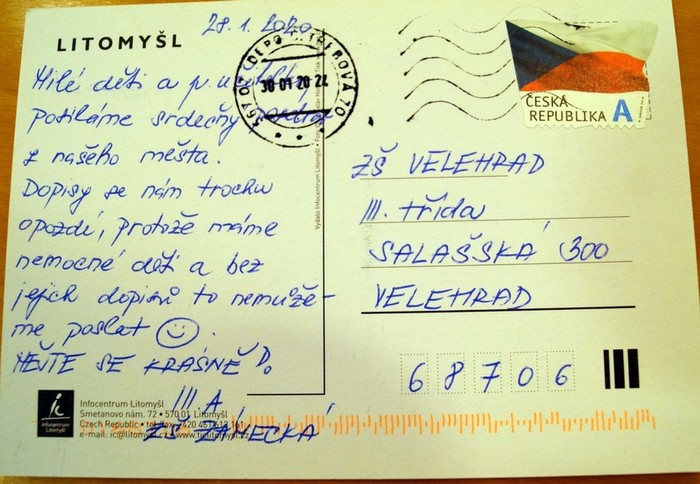 28.1.2020
LITOMYŠL
Milé děti a p. učitelky
posíláme srdečný pozdrav
z našeho města.
Dopisy se nám trochu
opozdí, protože máme
nemocné děti a bez
jejich dopisů to nemůže-
me poslat
MĚJTE SE KRÁSNĚ
III.A
ZŠ ZÁMECKÁ
Infocentrum Litomyšl
Smetanovo nám. 72 • 570 01 Litomyšl
Czech Republic • tel./fax: +420 461 612 161
e-mail: ic@litomysl.cz • www.litomysl.cz
infocentrum
Litomyšl
Vydalo Infocentrum Litomyšl
DEPO
70
30 01 20 - 22
ČESKÁ
REPUBLIKA A
ZŠ VELEHRAD
III. třída
SALAŠSKÁ 300
VELEHRAD
68706